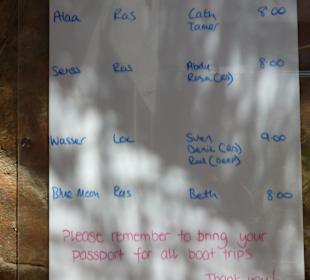 Alaa Ras Cath 8:00
Tamer
Ras Abdu 8:00
Rosa (RS)
Wasser Loc Sven 9:00
Blue Moon Ras Beth 8:00
Please remember to bring your
passport for all boat trips
Thank you!